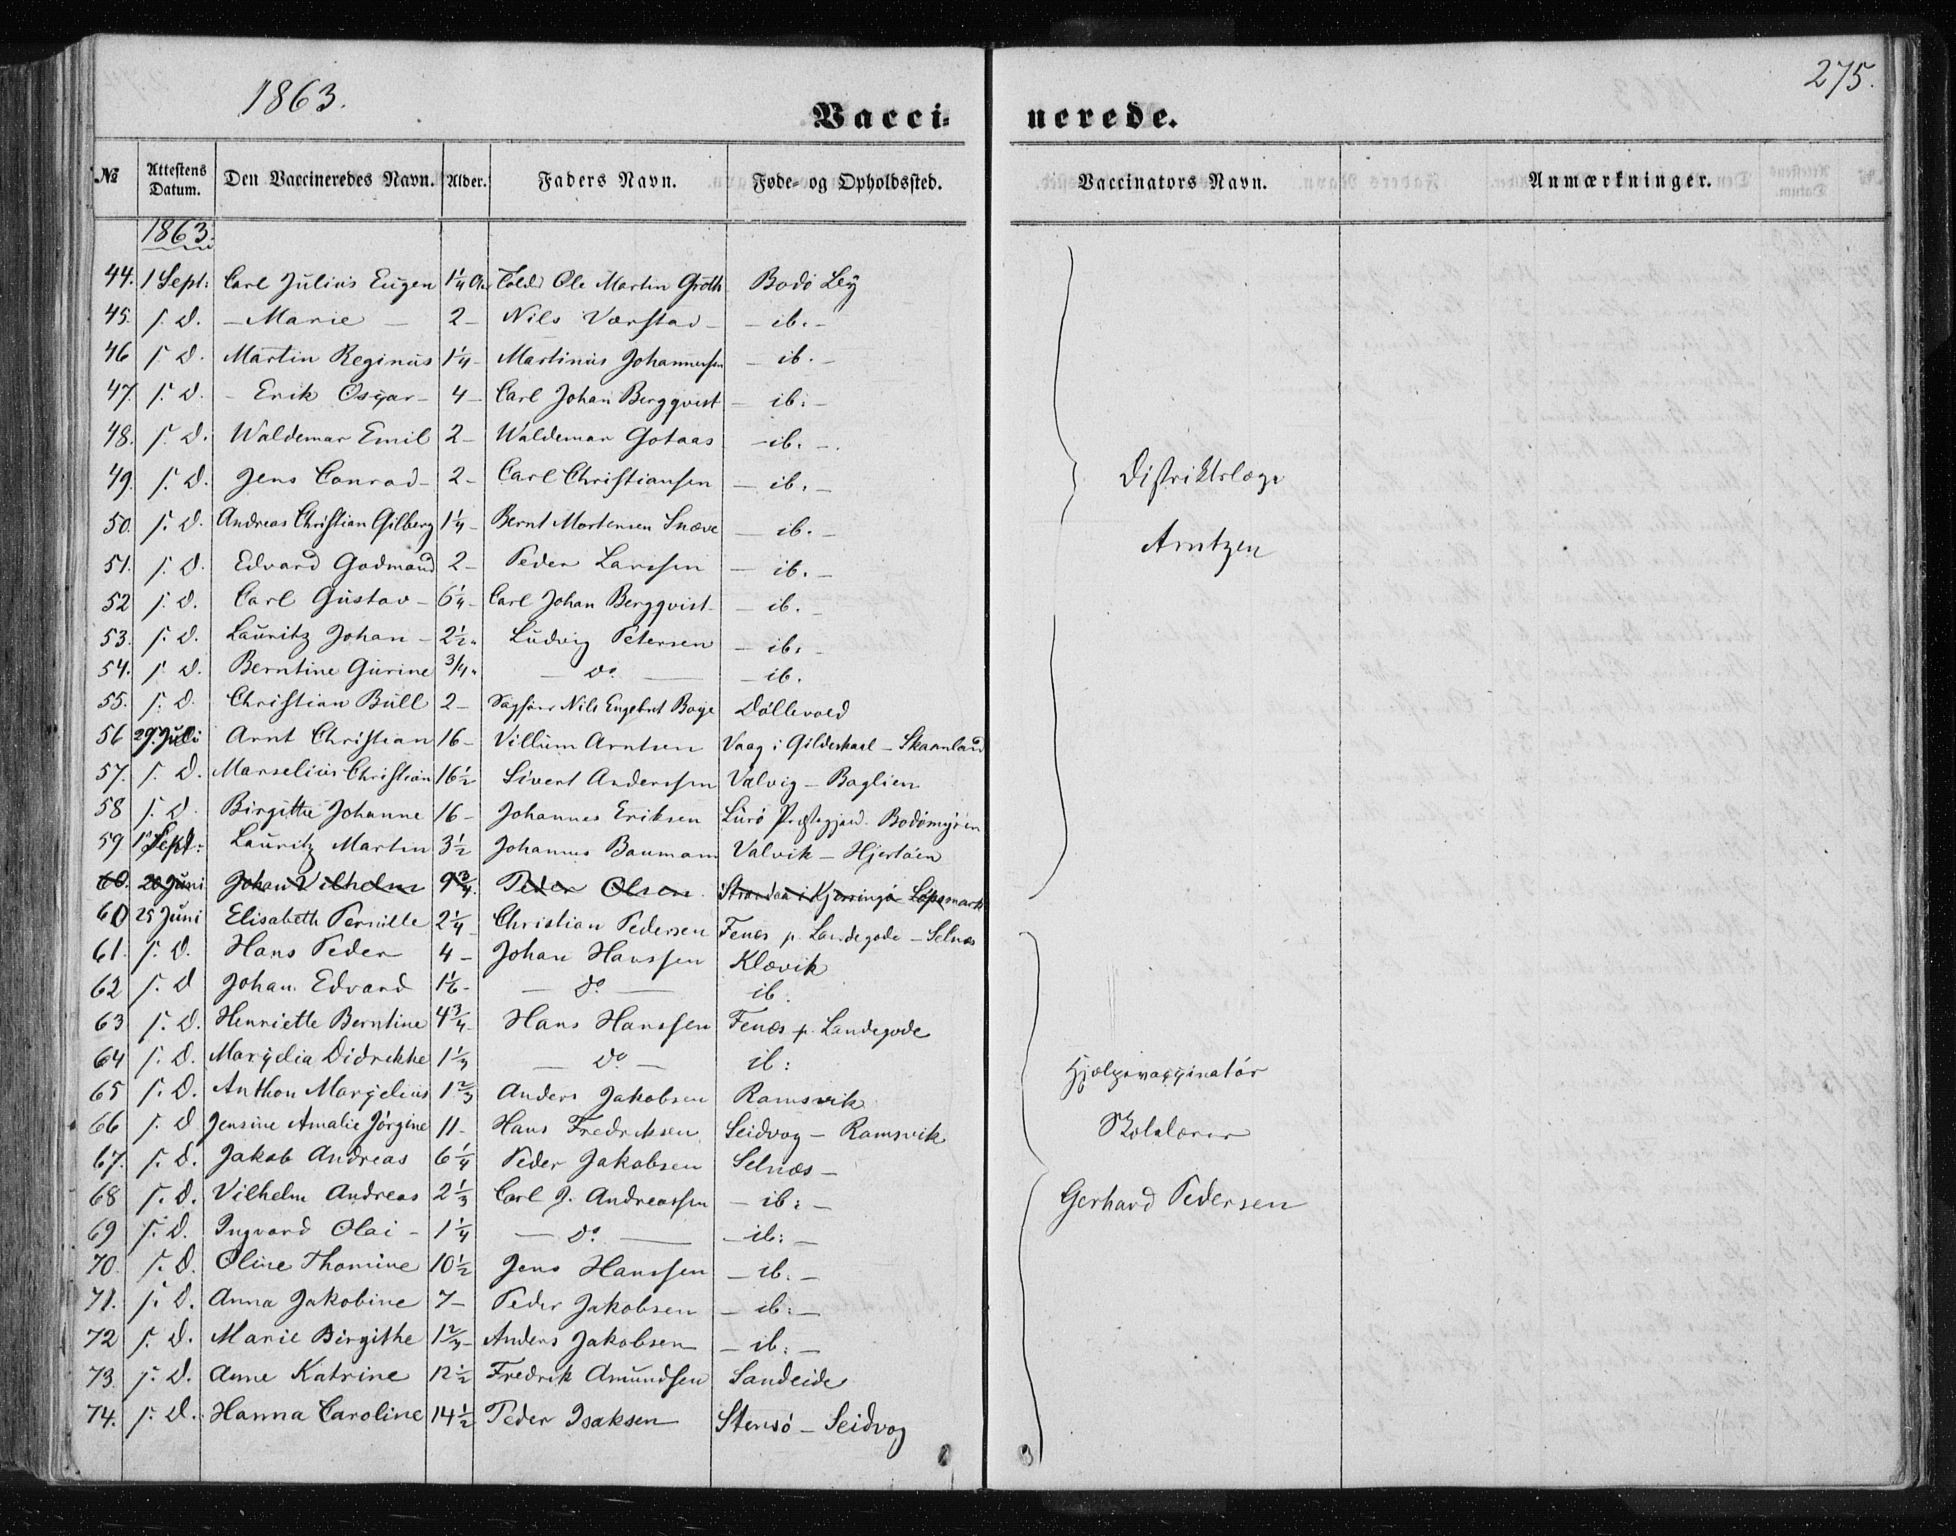 1863.
275.
Vacci-nerede.
№ Attestens Datum. Den Vaccineredes Navn. Alder. Faders Navn. Føde- og Opholdssted. Vaccinators Navn. Anmærkninger.
1863.
44. 1 Sept: Carl Julius Eugen 1¼ Ole Martin Groth Bodø
45. s. D. – Marie – 2 – Nils Værstad – ib. –
46 s. D. Martin Reginus 1¼ – Martinus Johannessen – ib. –
47 s. D. – Erik Oscar – 4 – Carl Johan Bergqvist – ib. –
48. s. D. Waldemar Emil 2 – Waldemar Gotaas – ib. –
49. s. D. Jens Conrad – 2 – Carl Christiansen – ib. –
50. s. D. Andreas Christian Gilberg 1¼ – Bernt Mortensen Snæve – ib. –
51. s. D. Edvard Godmand 2 – Peder Larssen – ib. –
52 s. D. Carl Gustav – 6¼ – Carl Johan Bergqvist – ib. –
53. s. D. Lauritz Johan – 2½ " Ludvig Petersen – ib. –
54. s. D. Berntine Gurine 3/4 " – Do – – ib.
55. s. D. Christian Bull 2 – Nils Engebret Boye
56 29 Juli Arnt Christian 16 – Villum Arntsen Vaag i Gildeskaal – Skaanland
57. s. D. Marselius Christian 16½ Sivert Anderssen Valvig – Boglien
58 s. D. Birgitte Johanne 16 – Johannes Eriksen Lurø Præstegjæld. Bodømyren
59 1 Sept: Lauritz Martin 3½ Johannes Baumann Valvik – Hjertøen
60. 20 Juni Johan Vilhelm 9¾ Peder Olsen Strandaa i Kjerringø Løpsmark
60 25 Juni Elisabeth Pernille 2¼ Christian Pedersen Fenes p. Landegode – Selnæs
61. s. D. Hans Peder 4 – Johan Hanssen Klævik
62 s. D Johan Edvard 1⅙ – – Do – ib.
63 s. D. Henriette Berntine 4¾ Hans Hanssen Fenes p. Landegode
64 s. D. Marcelia Didrekke 1⅓ – Do – ib:
65 s. D. Anthon Marcelius 1⅔ Anders Jakobsen Ramsvik
66 s. D Jensine Amalie Jørgine 11 – Hans Fredriksen Seidvog – Ramsvik
67. s. D. Jakob Andreas 6¼ Peder Jakobsen Selnæs –
68 s. D. Vilhelm Andreas 2⅓ Carl J. Andreassen – ib: –
69 s. D. Ingvard Olai – 1¼ – Do – – ib: –
70. s. D. Oline Thomine 10½ Jens Hanssen – ib. –
71. s. D. Anna Jakobine 7 – Peder Jakobsen – ib: –
72 s. D. Marie Birgithe 1⅔ – Anders Jakobsen – ib: –
73. s. D. Anne Katrine 12½ Fredrik Amundsen Sandeide
74. s. D. Hanna Caroline 14½ Peder Isaksen Stensø – Seidvog
Distriktslæge
Arntzen
Hjælpevaccinatør
Skolelærer
Gerhard Pedersen